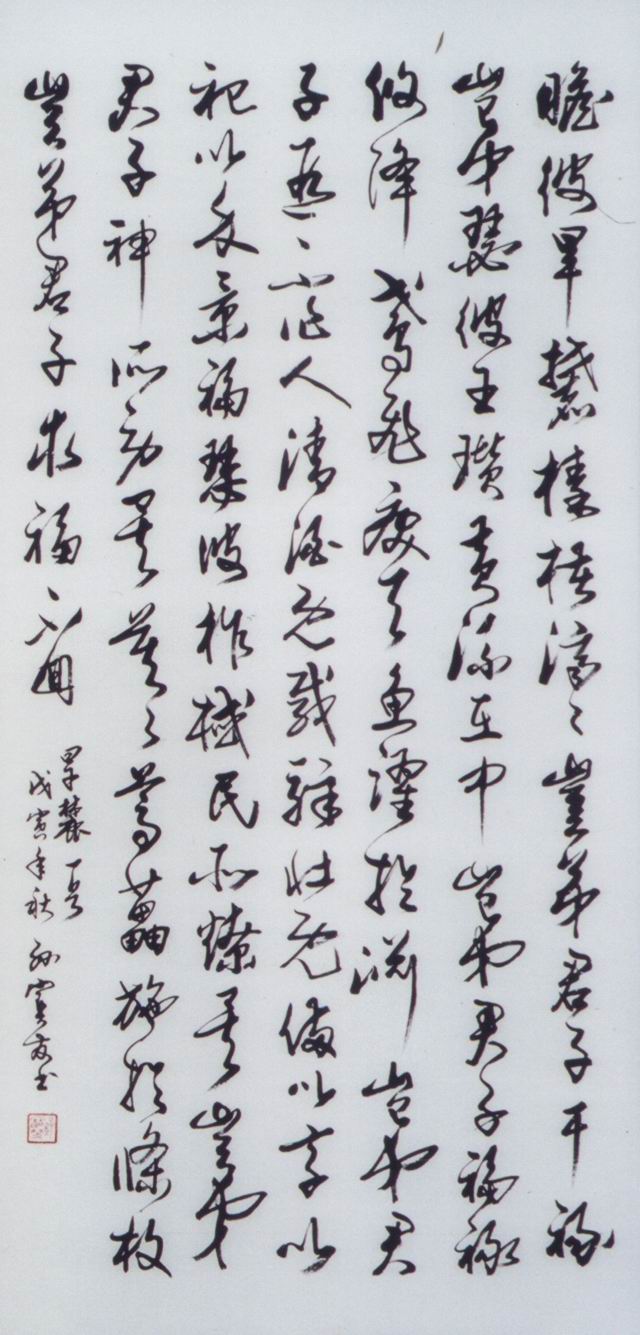 瞻彼旱麓榛楛濟〻豈弟君子干祿
豈弟瑟彼玉瓚黃流在中豈弟君子福祿
攸降鳶飛戾天魚躍於淵豈弟君
子遐不作人清酒既載騂牡既備以享以
祀以介景福瑟彼柞棫民所燎矣豈弟
君子神所勞矣莫〻葛藟施於條枚
豈弟君子求福不回
旱麓一首
戊寅年秋 孫寶書